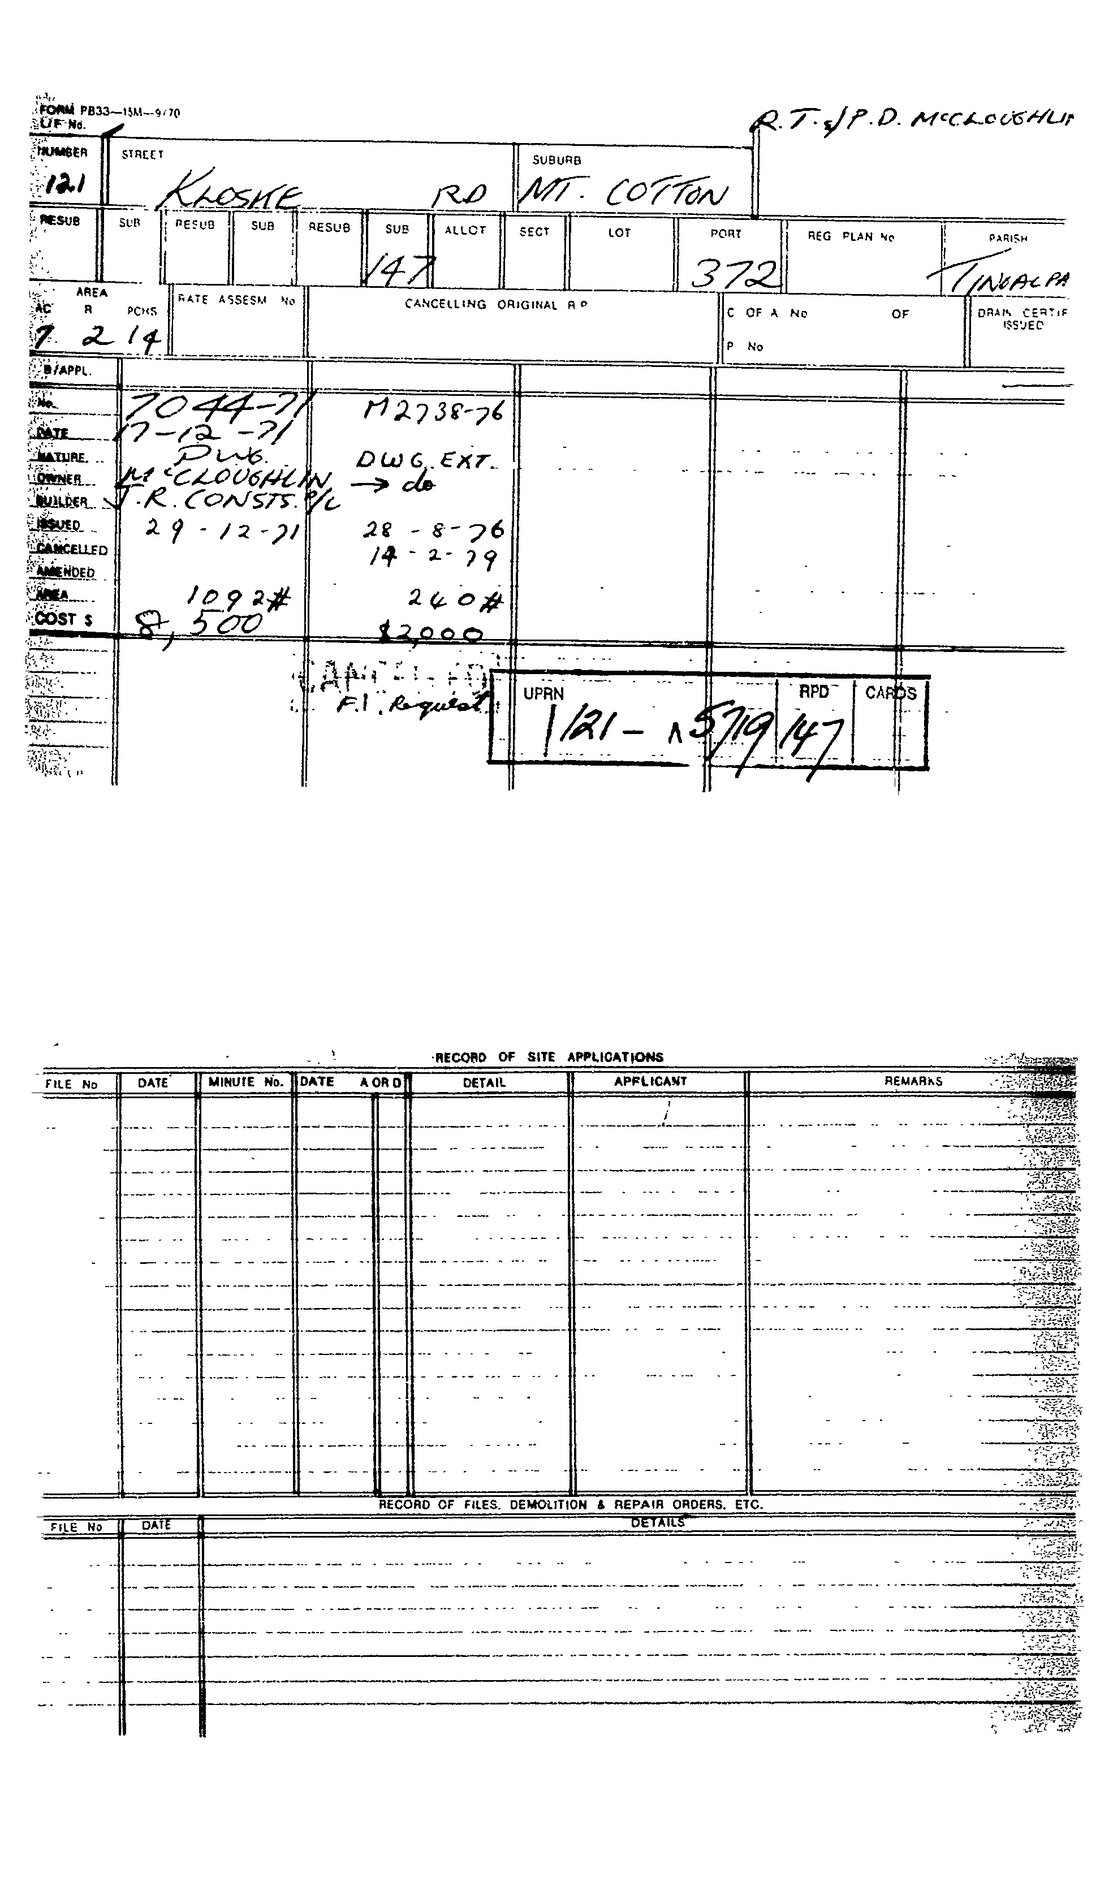 FORM PB33—15M—9/70
L/F No.
R.T. & P.D. McCLOUGHLIN
NUMBER STREET SUBURB
121 KLOSKE RD MT. COTTON
RESUB SUB RESUB SUB RESUB SUB ALLOT SECT LOT PORT REG PLAN No PARISH
147 372 TINGALPA
AREA RATE ASSESM No CANCELLING ORIGINAL R P C OF A No OF DRAIN CERTIF
AC R PCHS ISSUED
7 2 14 P No
B/APPL.
No. 7044-71 M2738-76
DATE 17-12-71
NATURE DWG. DWG. EXT.
OWNER McCLOUGHLIN → do
BUILDER J.R. CONSTS. P/L
ISSUED 29-12-71 28-8-76
CANCELLED 14-2-79
AMENDED
AREA 1092# 240#
COST $ 8,500 $2,000
CANCELLED
F.I. Request.
UPRN RPD CARDS
1121- 5719 147
RECORD OF SITE APPLICATIONS
FILE No DATE MINUTE No. DATE A OR D DETAIL APPLICANT REMARKS
RECORD OF FILES, DEMOLITION & REPAIR ORDERS, ETC.
FILE No DATE DETAILS